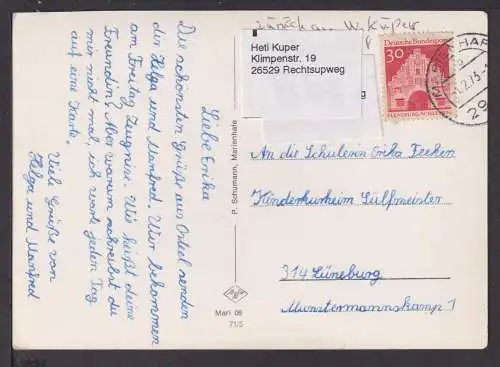 Liebe Erika
Die schönsten Grüße aus Osteel senden
dir Helga und Manfred. Wir bekommen
am Freitag Zeugnisse. Wie heißt deine
Freundin? Aber warum schreibst du
mir nicht mal, ich warte jeden Tag
auf eine Karte.
Viele Grüße von
Helga und Manfred
P. Schumann, Marienhafe
Mari 08
71/5
zurück an W. Küper
Heti Kuper
Klimpenstr. 19
26529 Rechtsupweg
Deutsche Bundespost
30
FLENSBURG/SCHLESWIG
2.73
An die Schülerin Erika Feeken
Kinderkurheim Sülfmeister
314 Lüneburg
Munstermannskamp 1